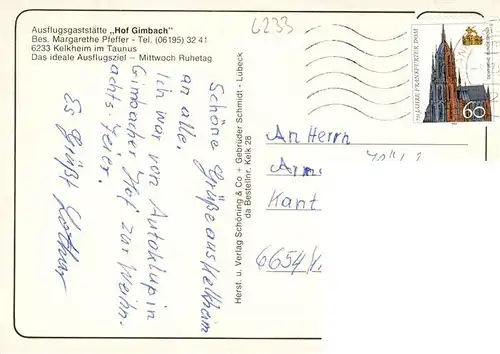 Ausflugsgaststätte „Hof Gimbach"
Bes. Margarethe Pfeffer - Tel. (06195) 32 41
6233 Kelkheim im Taunus
Das ideale Ausflugsziel – Mittwoch Ruhetag
6233
Schöne Grüße aus Kelkheim
an alle.
Ich war vom Autoklup in
Gimbacher Hof zur Weihn-
achts-Feier.
Es grüßt Lothar
Herst. u. Verlag Schöning & Co + Gebrüder Schmidt - Lübeck
da Bestellnr. Kelk 28
750 JAHRE FRANKFURTER DOM
60
An Herrn
Kant
6654